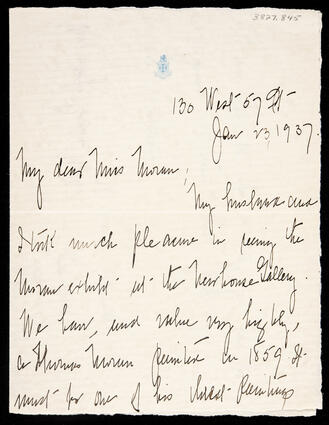 3827.845
130 West 57 St
Jan 23, 1937.
My dear Miss Moran,
My husband and
I took much pleasure in seeing the
Moran exhibit at the Newhouse Gallery.
We have, and value very highly,
a Thomas Moran painted in 1859 It
must be one of his oldest paintings